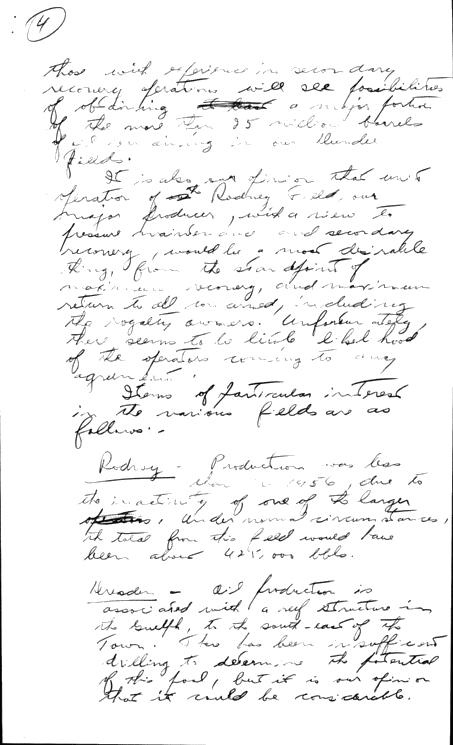 4
those with experience in secondary
recovery operations will see possibilities
of obtaining at least a major portion
of the more than 25 million barrels
of oil remaining in our Dundee
fields.
It is also our opinion that unit
operation of the Rodney Field, our
major producer, with a view to
pressure maintenance and secondary
recovery, would be a most desirable
thing, from the standpoint of
maximum recovery, and maximum
return to all concerned, including
the royalty owners. Unfortunately,
there seems to be little likelihood
of the operators coming to any
agreement.
Items of particular interest
in the various fields are as
follows:-
Rodney - Production was less
than in 1956, due to
the inactivity of one of the larger
operators. Under normal circumstances,
the total from this field would have
been about 425,000 bbls.
- Oil production is
associated with a reef structure in
the Guelph, to the south-east of the
Town. There has been insufficient
drilling to determine the potential
of this pool, but it is our opinion
that it could be considerable.